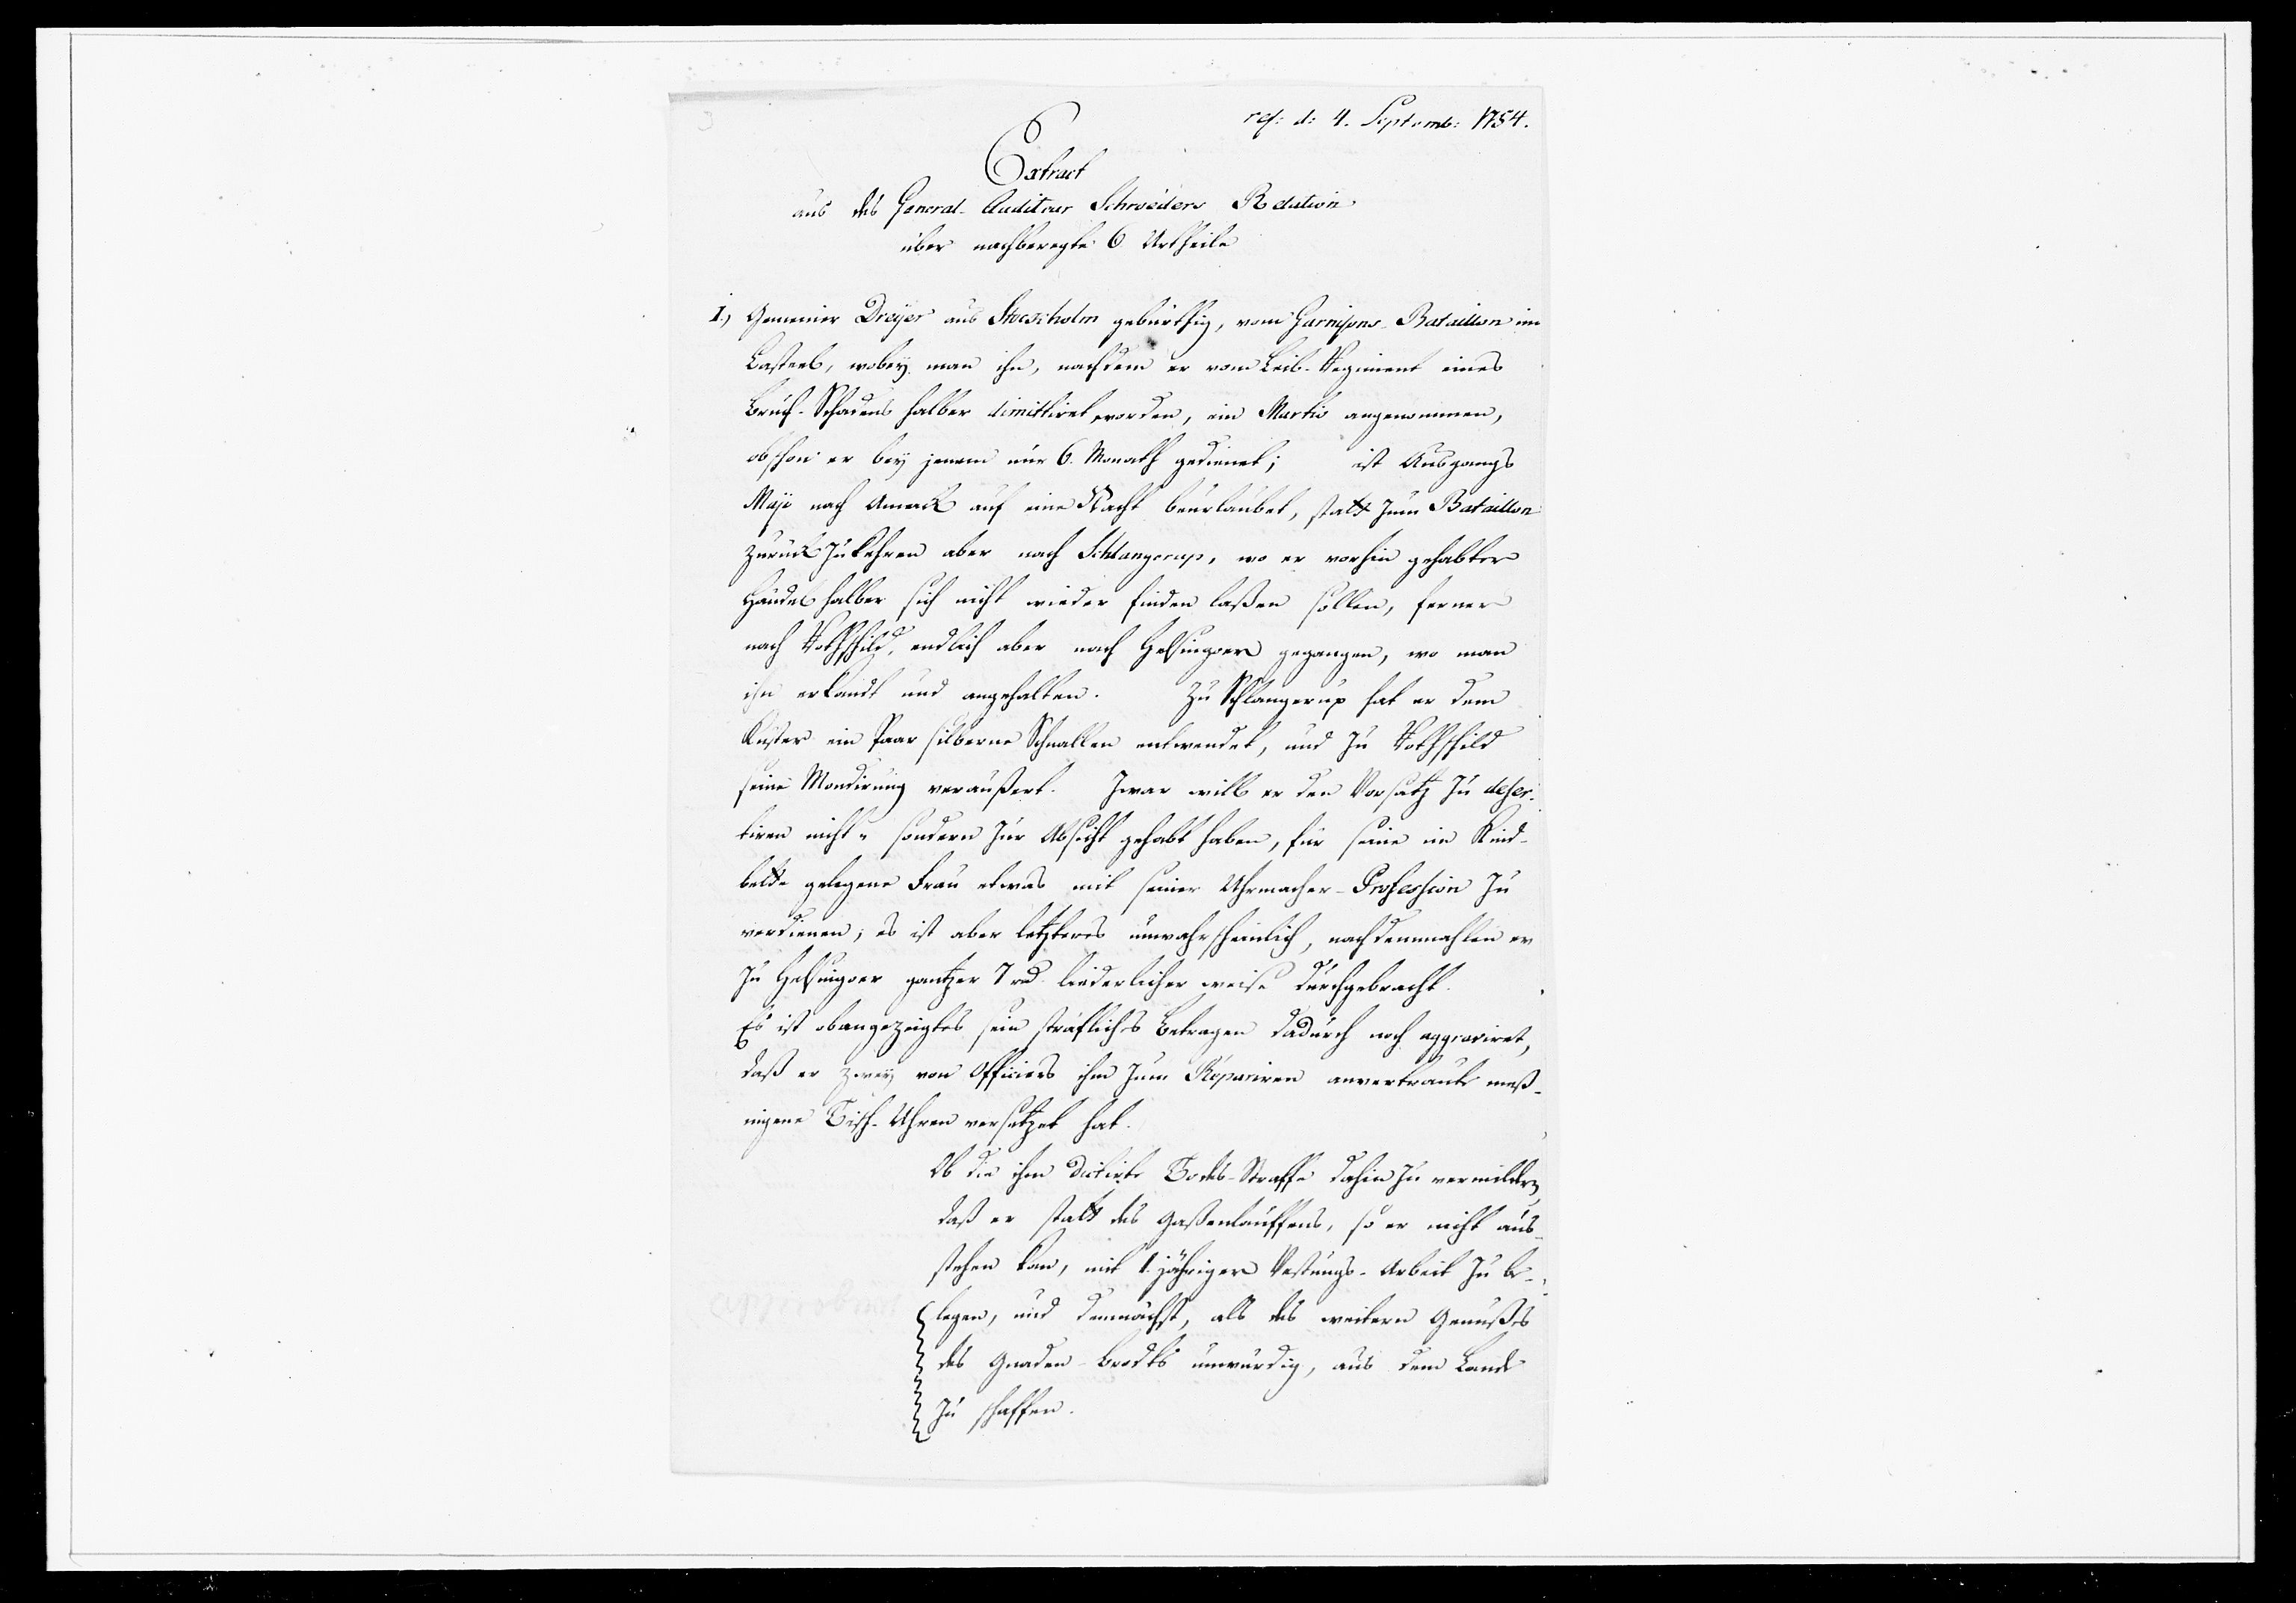 ref: d: 4. Septemb: 1754.
Extract
aus des General-Auditeur Schroeders Relation
über nachberegte 6. Urtheile
1.) Gemeiner Dreyer aus Stockholm gebürthig, vom Garnisons-Bataillon im
Castell, wobey man ihn, nachdem er vom Leib-Regiment eines
Bruch-Schadens halber dimittiret worden, im Martio angenommen,
obschon er bey jenem nur 6. Monath gedienet; ist Ausgangs
Maji nach Amack auf eine Nacht beurlaubet, statt zum Bataillon
zurück zu kehren aber nach Schlangerup, wo er vorhin gehabter
Händel halber sich nicht wieder finden laßen sollen, ferner
nach Rothschild, endlich aber nach Helsingoer gegangen, wo man
ihn erkandt und angehalten. Zu Schlangerup hat er dem
Küster ein Paar silberne Schnallen entwendet, und zu Rothschild
seine Mondirung veraußert. Zwar will er den Vorsatz zu deser-
tiren nicht, sondern zur Absicht gehabt haben, für seine im Kind-
bette gelegene Frau etwas mit seiner Uhrmacher-Profession zu
verdienen; es ist aber letzteres unwahrscheinlich, nachdemmahlen er
zu Helsingoer gantzer 7 rd. liederlicher weise durchgebracht.
Es ist obangezeigtes sein sträfliches Betragen dadurch noch aggraviret,
daß er zwey von Officiers ihm zum Repariren anvertraute meß-
ingene Tisch-Uhren versetzet hat.
Ob die ihm dictirte Todes-Straffe dahin zu vermildern,
daß er statt des Gaßenlauffens, so er nicht aus-
stehen kan, mit 1. jähriger Vestungs-Arbeit zu be-
legen, und demnächst, als des weitern Genußes
des Gnaden-Brodts unwürdig, aus dem Lande
zu schaffen.
approbirt